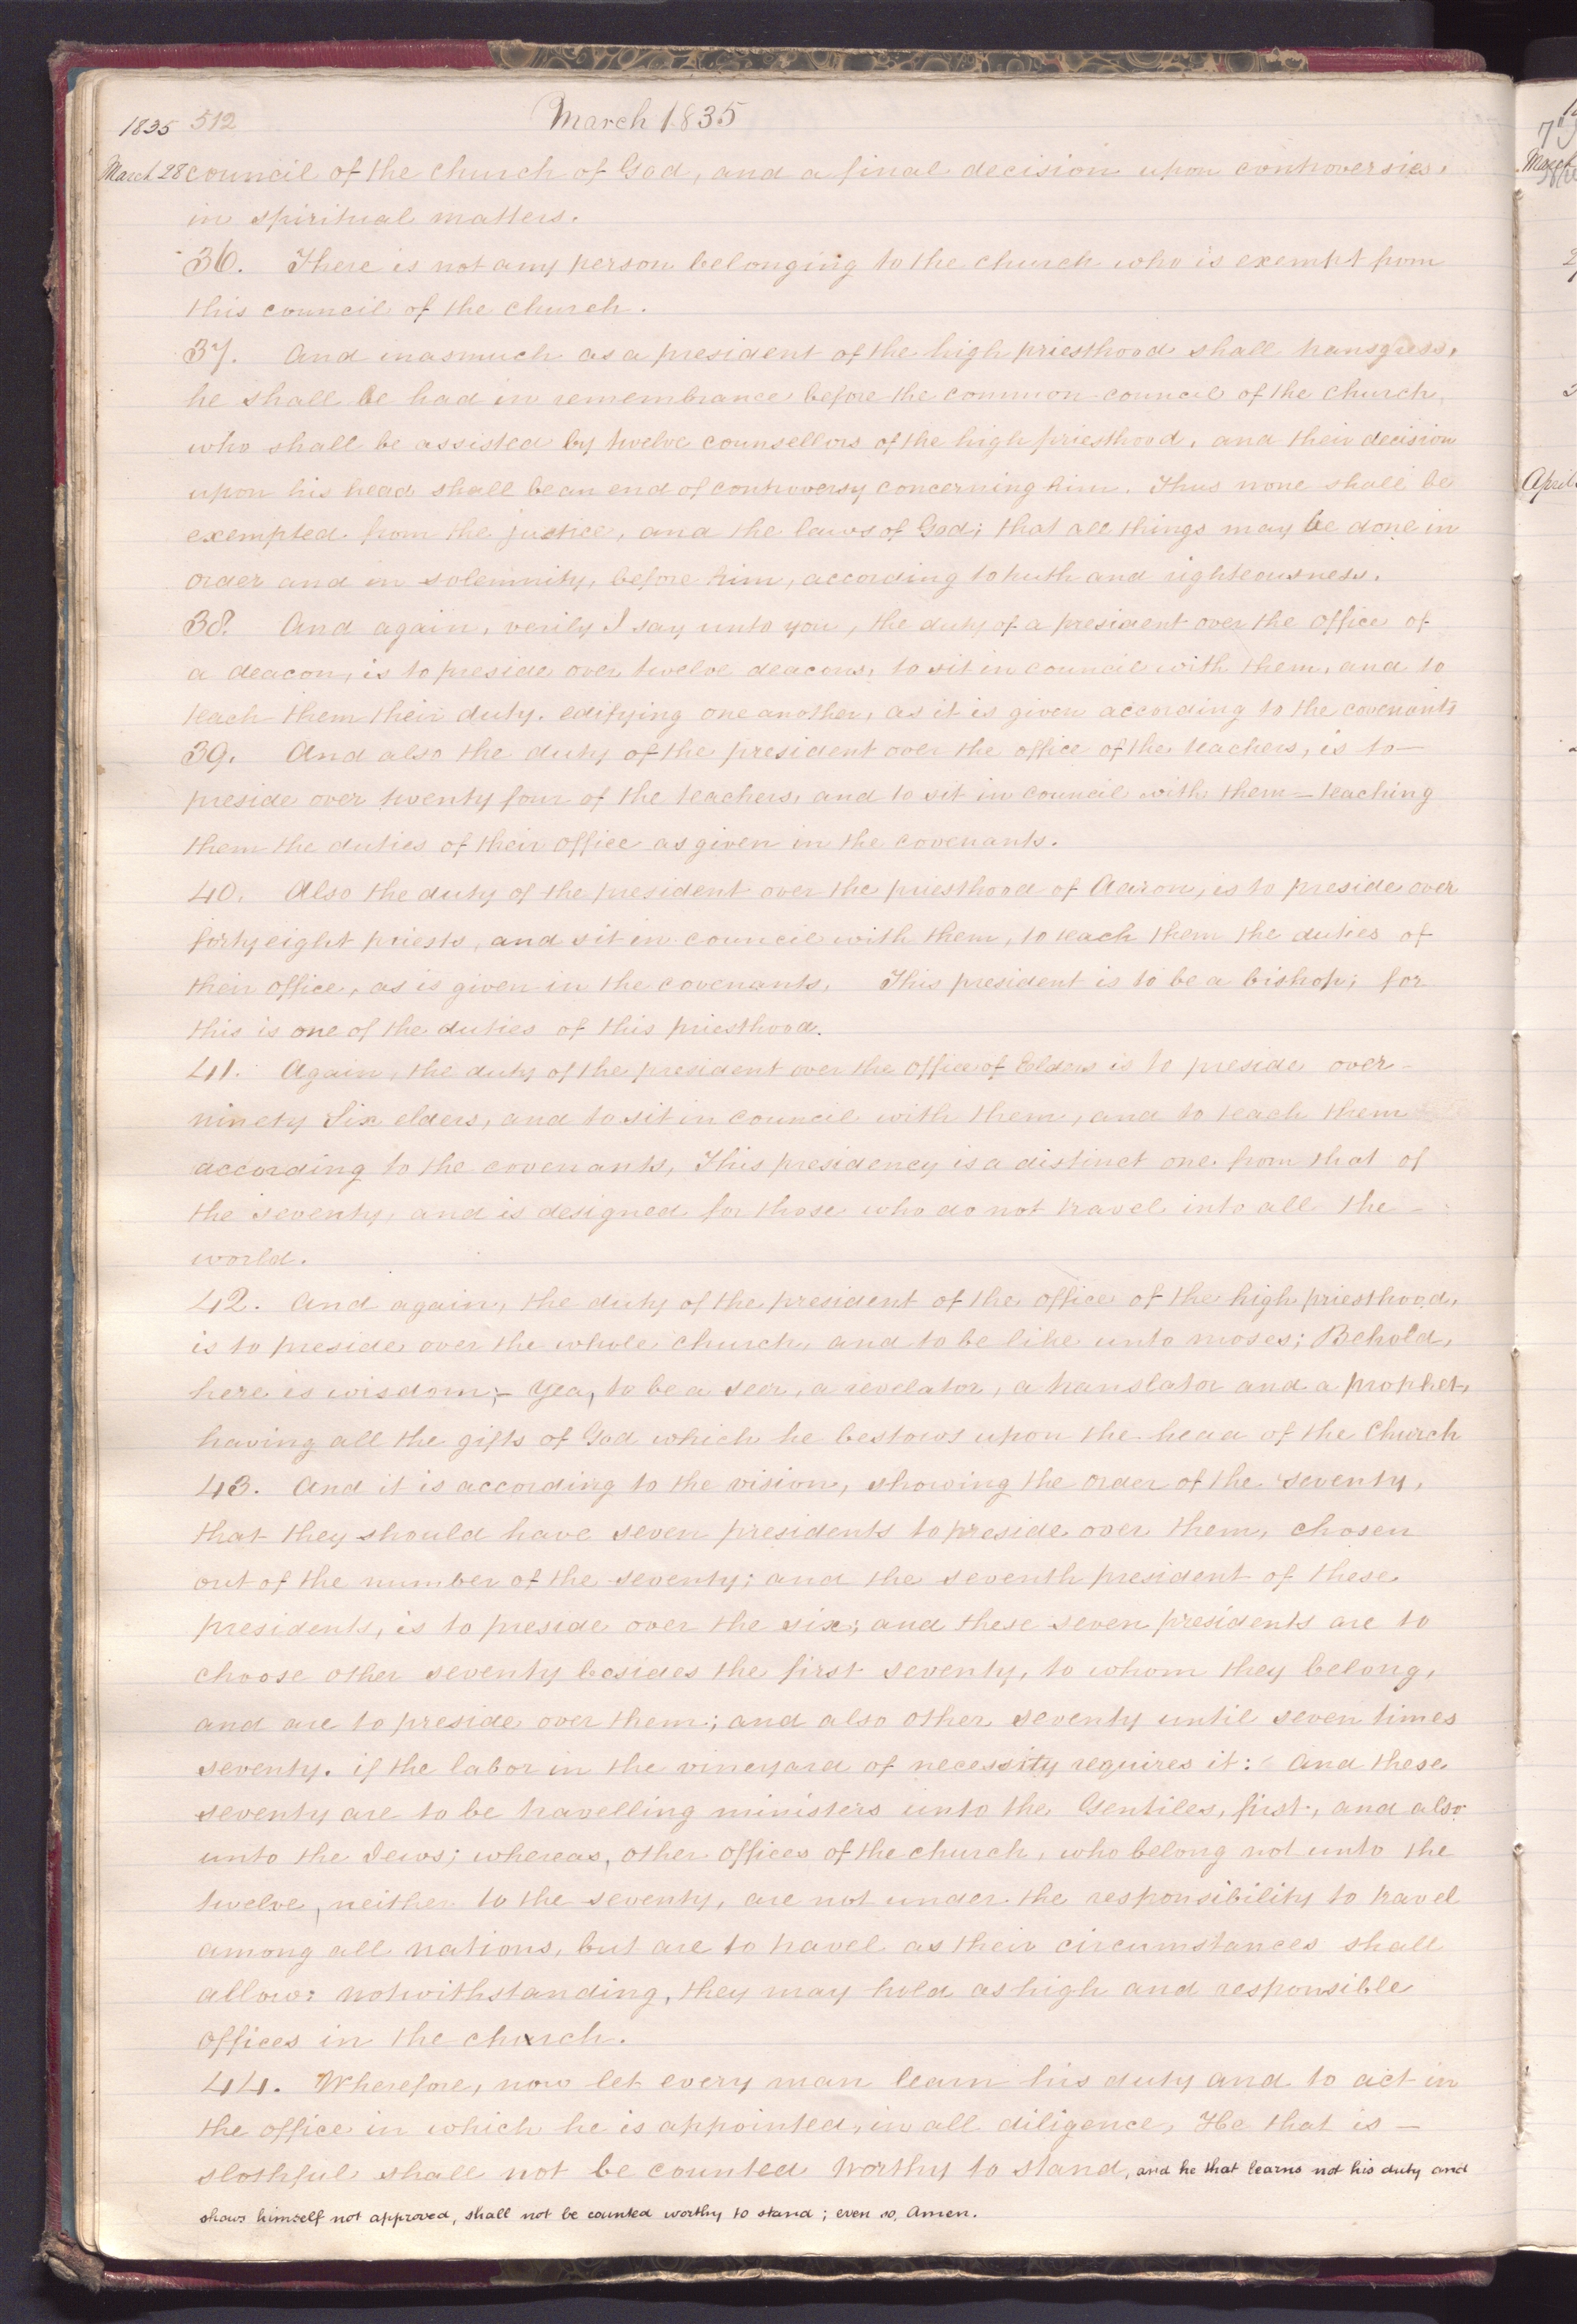 1835 512 March 1835
March 28 council of the church of God, and a final decision upon controversies,
in spiritual matters.
36. There is not any person belonging to the church who is exempt from
this council of the church.
37. And inasmuch as a president of the high priesthood shall transgress,
he shall be had in remembrance before the common council of the church,
who shall be assisted by twelve counsellors of the high priesthood, and their decision
upon his head shall be an end of controversy concerning him. Thus none shall be
exempted from the justice, and the laws of God; that all things may be done in
order and in solemnity, before him, according to truth and righteousness.
38. And again, verily I say unto you, the duty of a president over the office of
a deacon, is to preside over twelve deacons, to sit in council with them, and to
teach them their duty. edifying one another, as it is given according to the covenants
39. And also the duty of the president over the office of the teachers, is to—
preside over twenty four of the teachers, and to sit in council with them—teaching
them the duties of their office as given in the covenants.
40. Also the duty of the president over the priesthood of Aaron, is to preside over
forty eight priests, and sit in council with them, to teach them the duties of
their office, as is given in the covenants, This president is to be a bishop; for
this is one of the duties of this priesthood.
41. Again, the duty of the president over the office of Elders is to preside over—
ninety Six elders, and to sit in council with them, and to teach them
according to the covenants, This presidency is a distinct one from that of
the seventy, and is designed for those who do not travel into all the—
world.
42. And again, the duty of the president of the office of the high priesthood,
is to preside over the whole church, and to be like unto moses; Behold,
here is wisdom;— Yea, to be a seer, a revelator, a translator and a prophet,
having all the gifts of God which he bestows upon the head of the Church
43. And it is according to the vision, showing the order of the seventy,
that they should have seven presidents to preside over them, chosen
out of the number of the seventy; and the seventh president of these
presidents, is to preside over the six; and these seven presidents are to
choose other seventy besides the first seventy, to whom they belong,
and are to preside over them; and also other seventy until seven times
seventy. if the labor in the vineyard of necessity requires it: And these
seventy are to be travelling ministers unto the Gentiles, first, and also
unto the Jews; whereas, other offices of the church, who belong not unto the
twelve, neither to the seventy, are not under the responsibility to travel
among all nations, but are to travel as their circumstances shall
allow: notwithstanding, they may hold as high and responsible
offices in the church.
44. Wherefore, now let every man learn his duty and to act in
the office in which he is appointed, in all diligence, He that is—
slothful shall not be counted worthy to stand, and he that learns not his duty and
shows himself not approved, shall not be counted worthy to stand; even so, Amen.
April